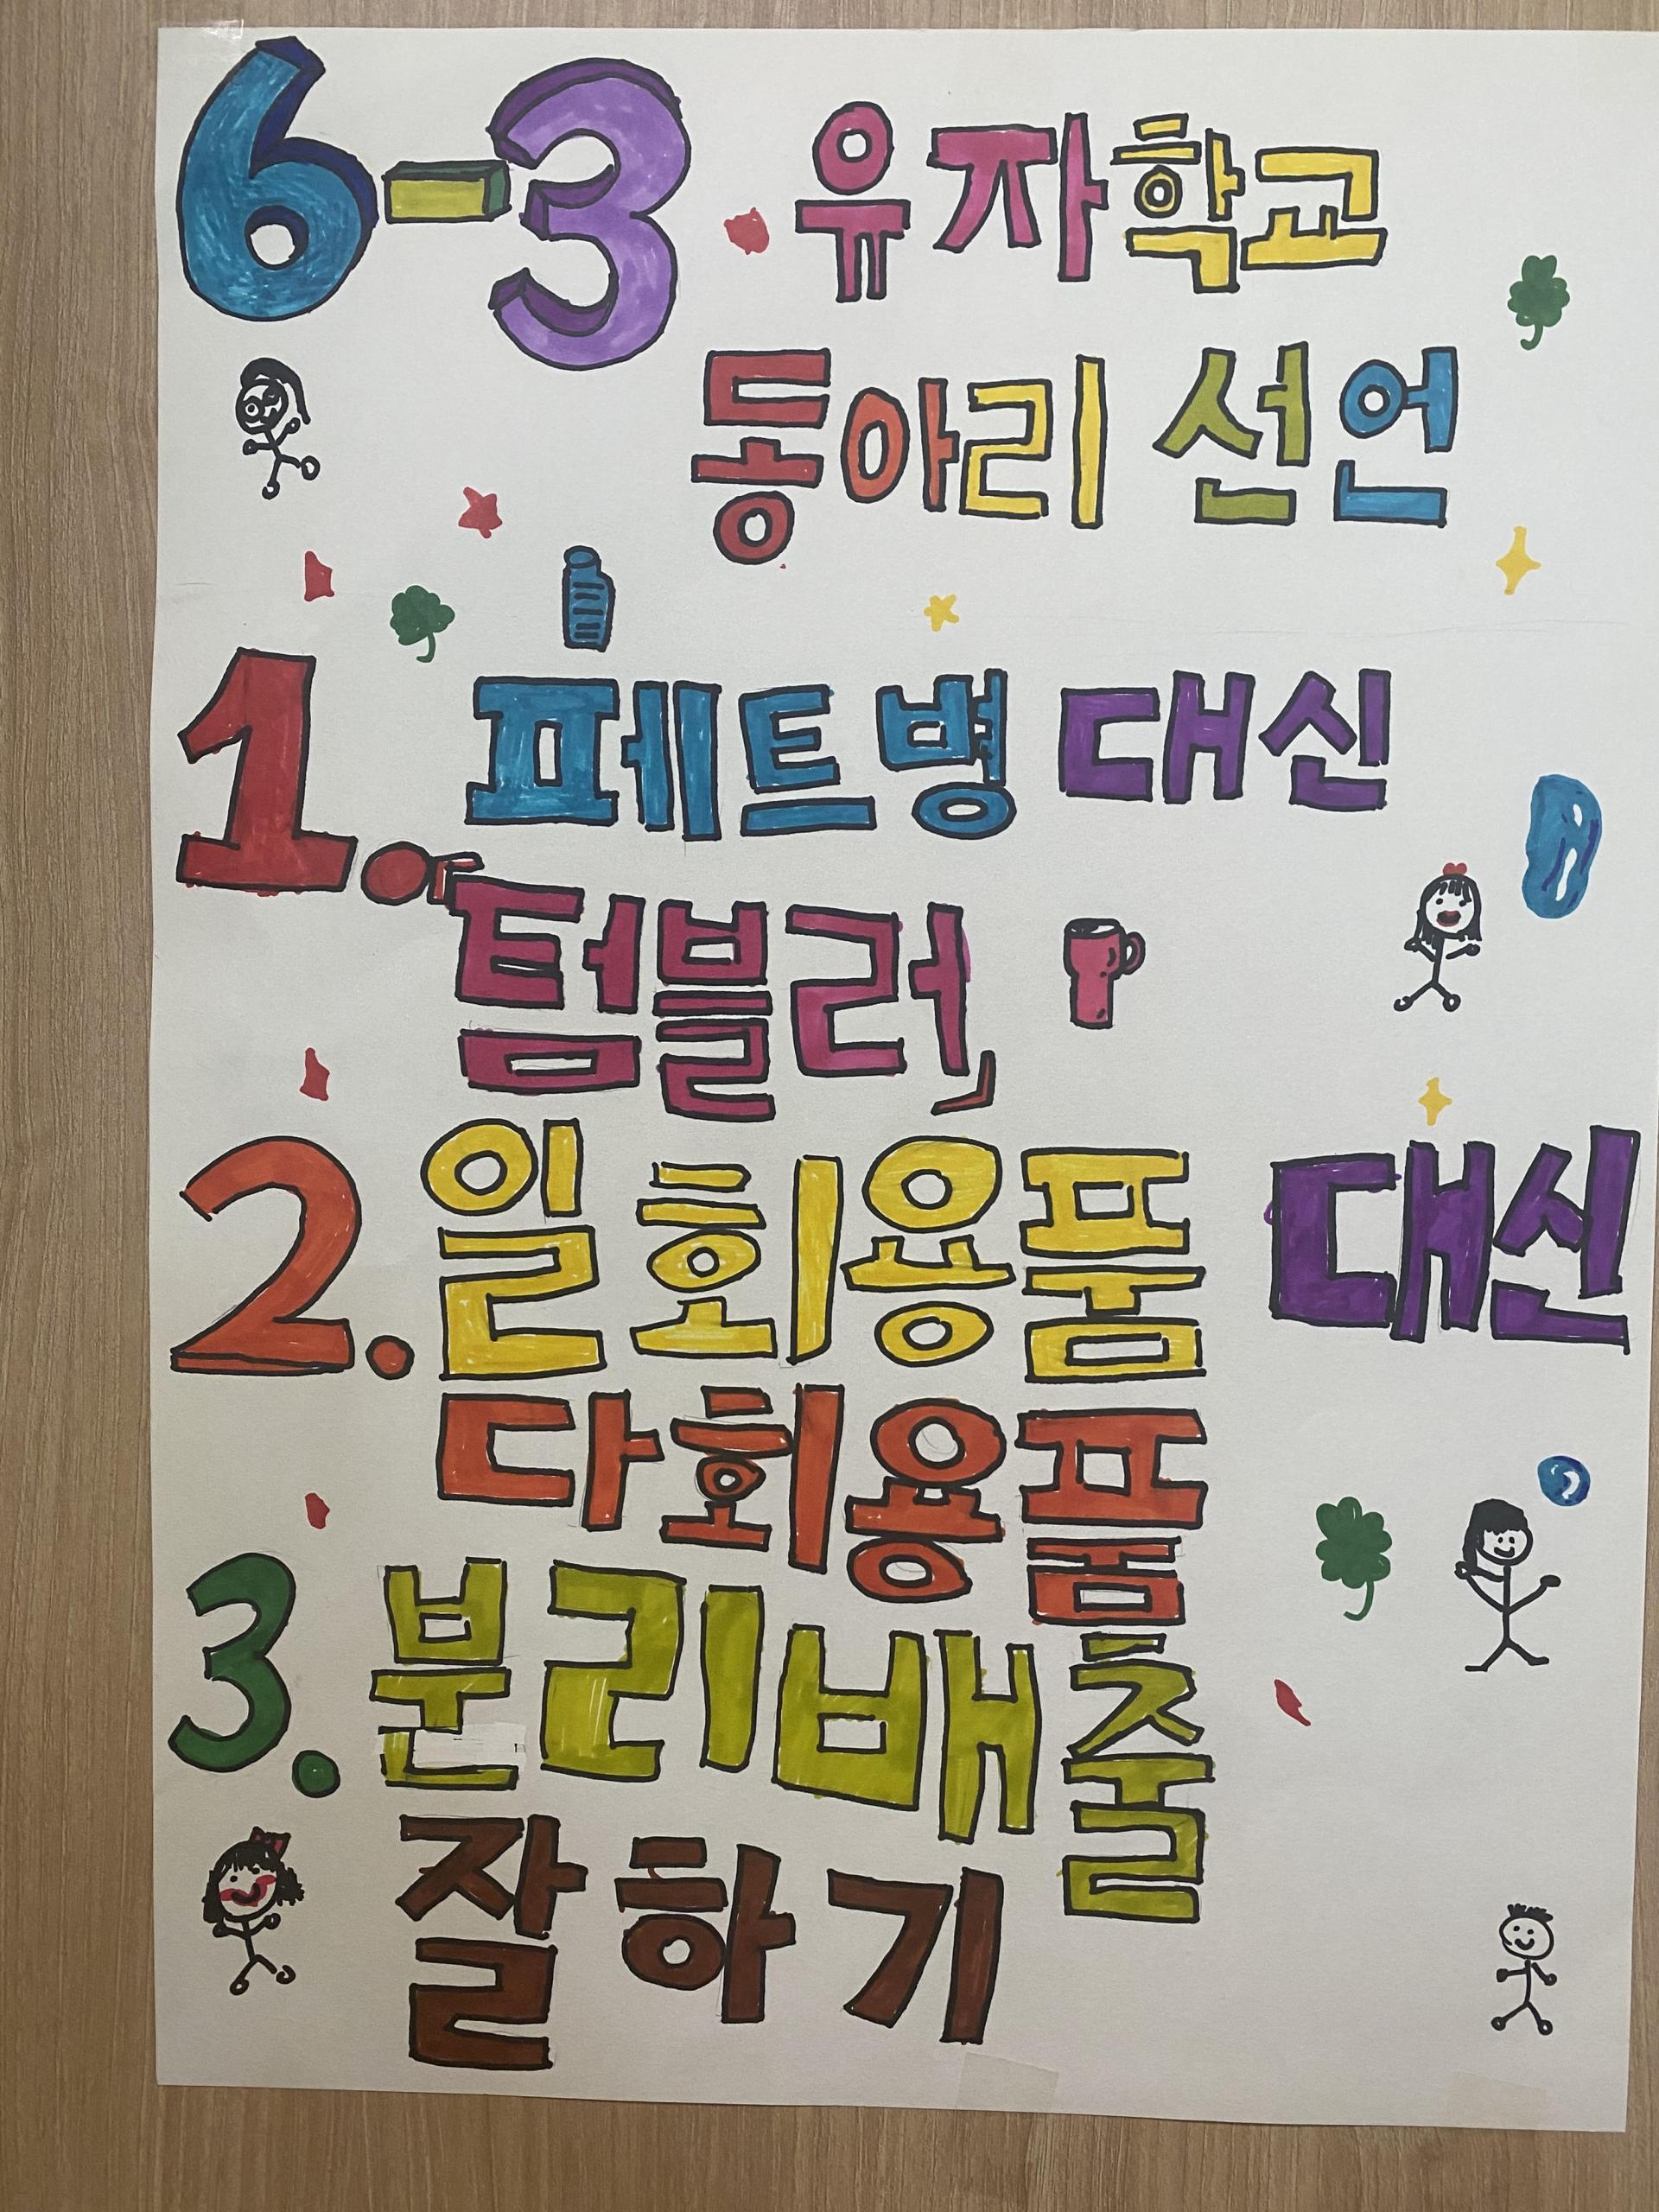 6-3 유자학교
동아리 선언
1. 페트병 대신
텀블러,
2. 일회용품 대신
다회용품
3. 분리배출
잘하기